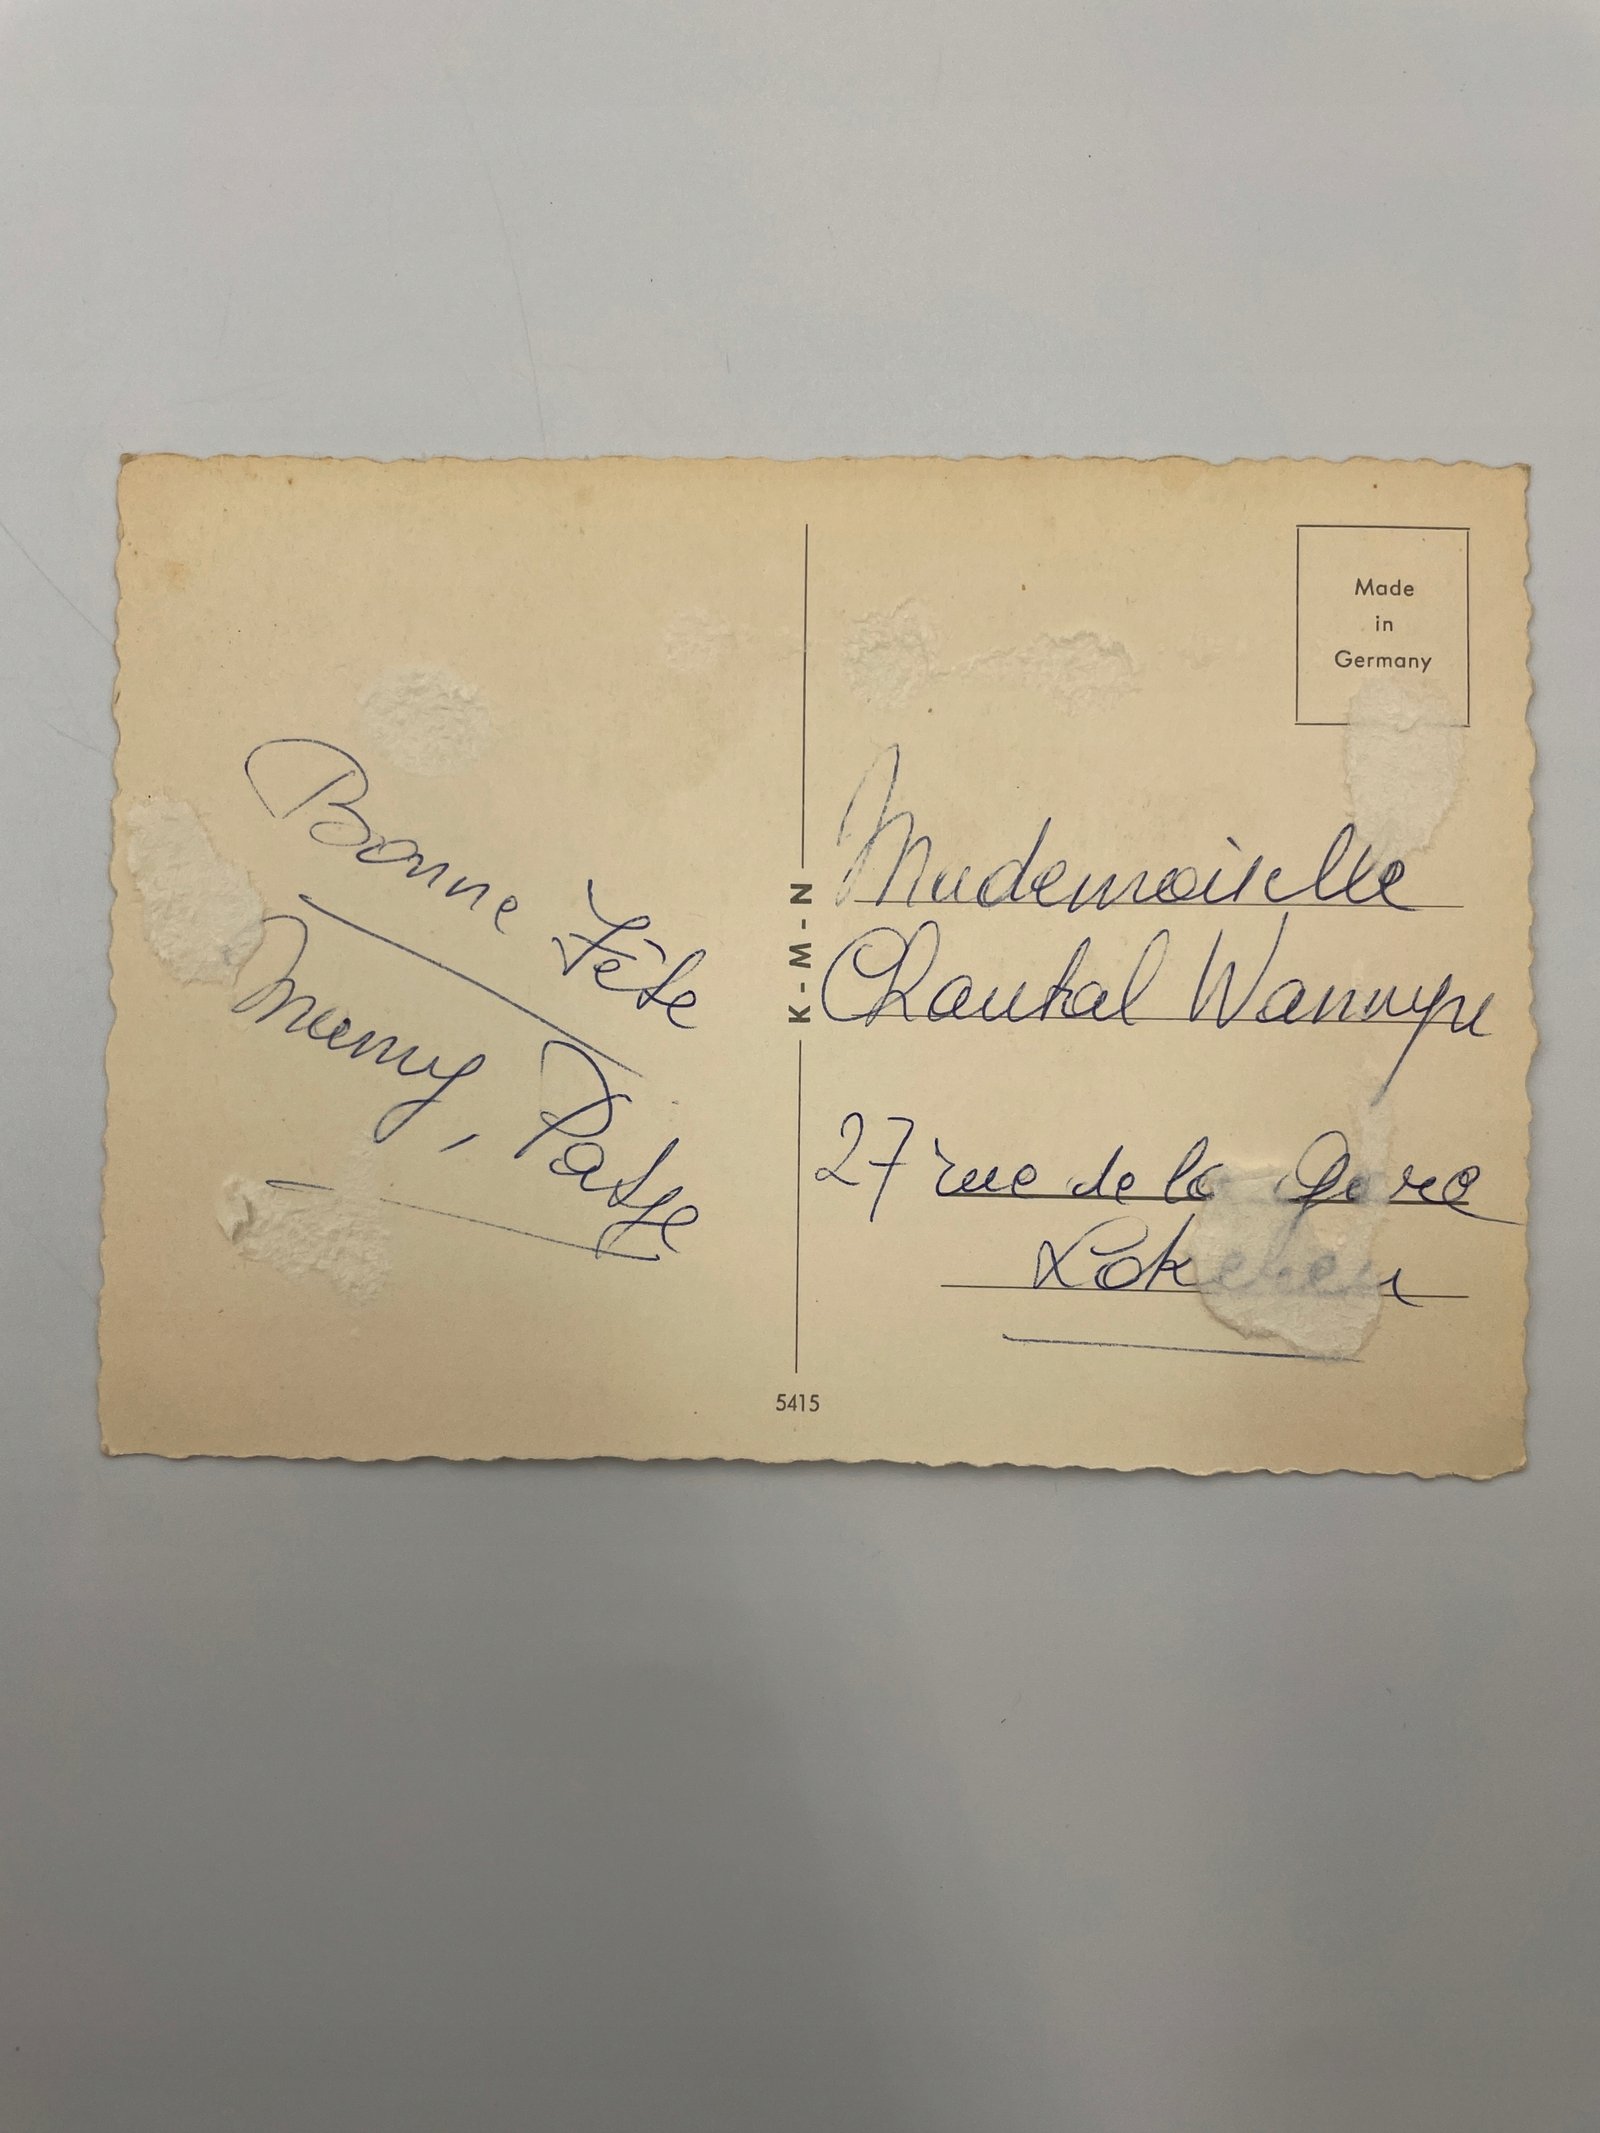 Bonne Fête
Mumy, Patje
K-M-N
5415
Made
in
Germany
Mademoiselle
Chantal
27 rue de la Gare
Lokeren